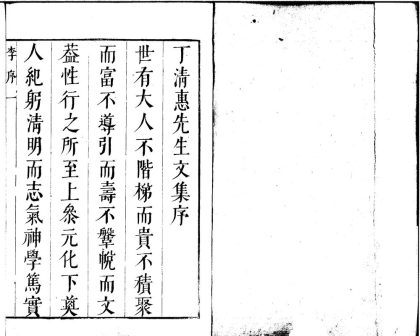 丁清惠先生文集序
世有大人不階梯而貴不積聚
而富不導引而壽不鞶帨而文
葢性行之所至上叅元化下奠
人紀躬清明而志氣神學篤實
李序 一